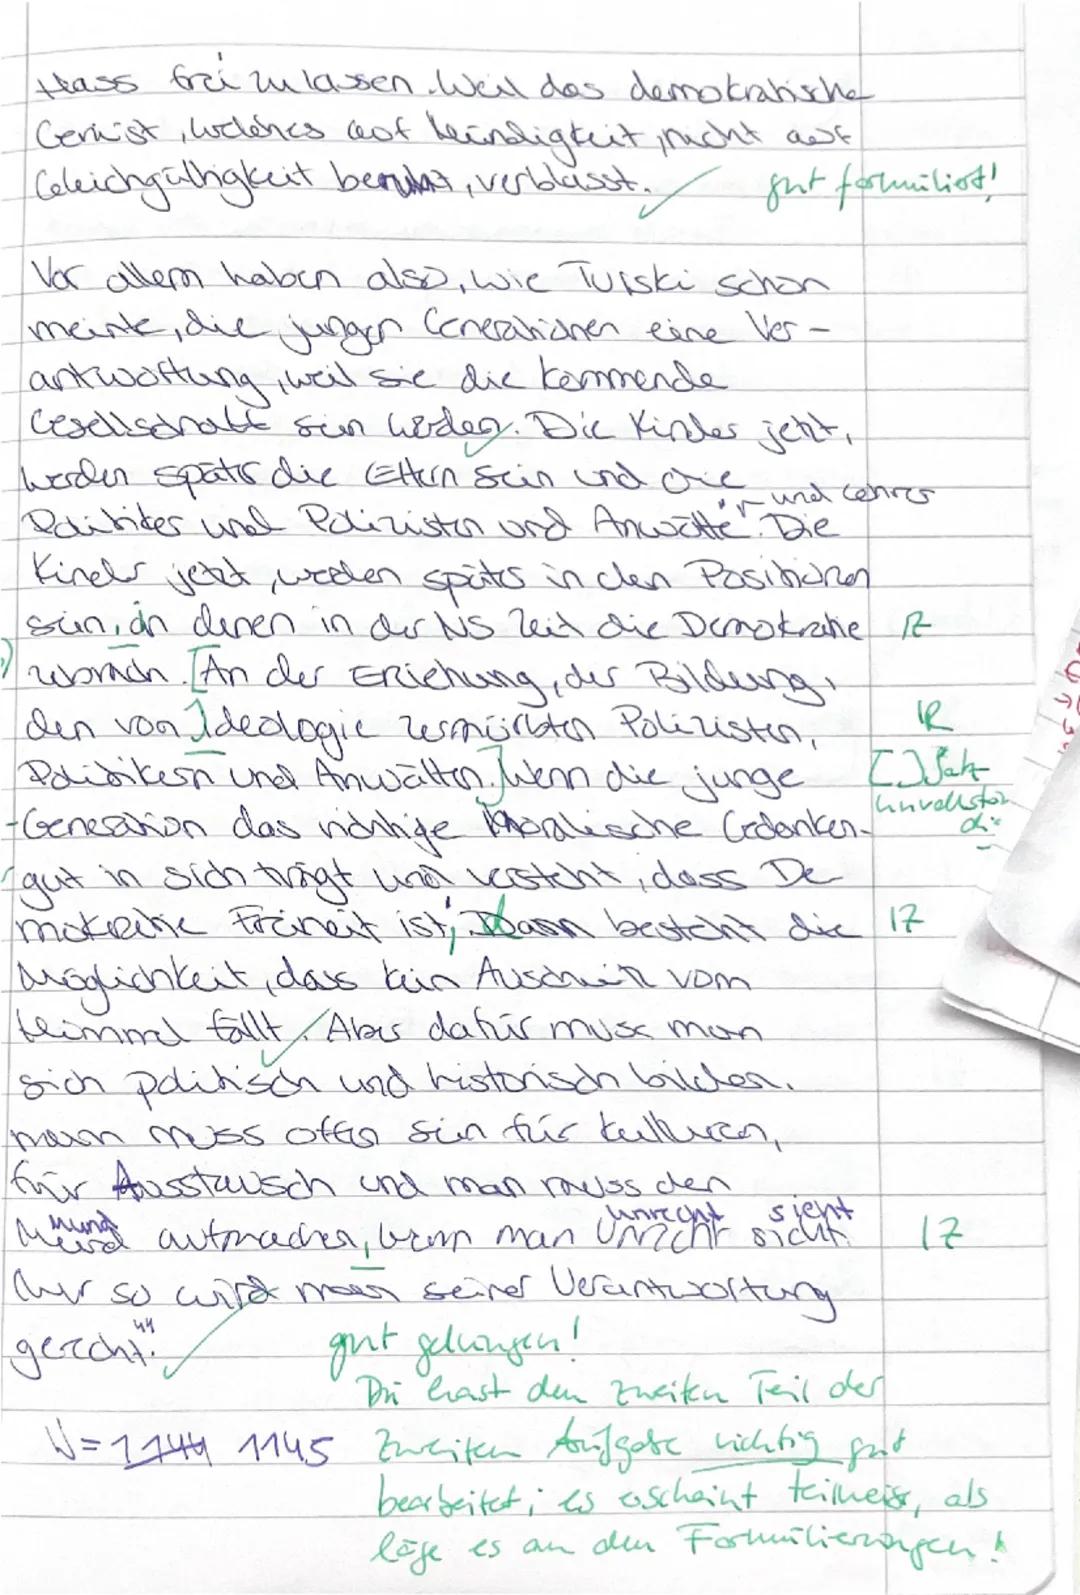 Hass frei zu lassen. Weil das demokratische
Gerüst, welches auf Mündigkeit, nicht auf
Gleichgültigkeit beruht, verblasst. gut formuliert!
Vor allem haben also, wie Turski schon
meinte, die jungen Generationen eine Ver-
antwortung, weil sie die kommende
Gesellschaft sein werden. Die Kinder jetzt,
werden später die Eltern sein und die
und Lehrer
Politiker und Polizisten und Anwälte. Die
Kinder jetzt, werden später in den Positionen
sein, an denen in der NS Zeit die Demokratie R
zerbrach. [An der Erziehung, der Bildung,
den von Ideologie zermürbten Polizisten, R
Politikern und Anwälten.] Wenn die junge [ ] Satz
unvollstän
dig
Generation das richtige moralische Gedanken-
gut in sich trägt und versteht, dass De
mokratie Freiheit ist, dann besteht die 1Z
Möglichkeit, dass kein Auschwitz vom
Himmel fällt. Aber dafür muss man
sich politisch und historisch bilden,
man muss offen sein für Kulturen,
für Austausch und man muss den
Mund unrecht sieht
aufmachen, wenn man Unrecht sieht. 1Z
Nur so wird man seiner Verantwortung
gerecht.“
gut gelungen!
Du hast den zweiten Teil der
W=1144 1145 zweiten Aufgabe richtig gut
bearbeitet; es erscheint teilweise, als
läge es an den Formulierungen!